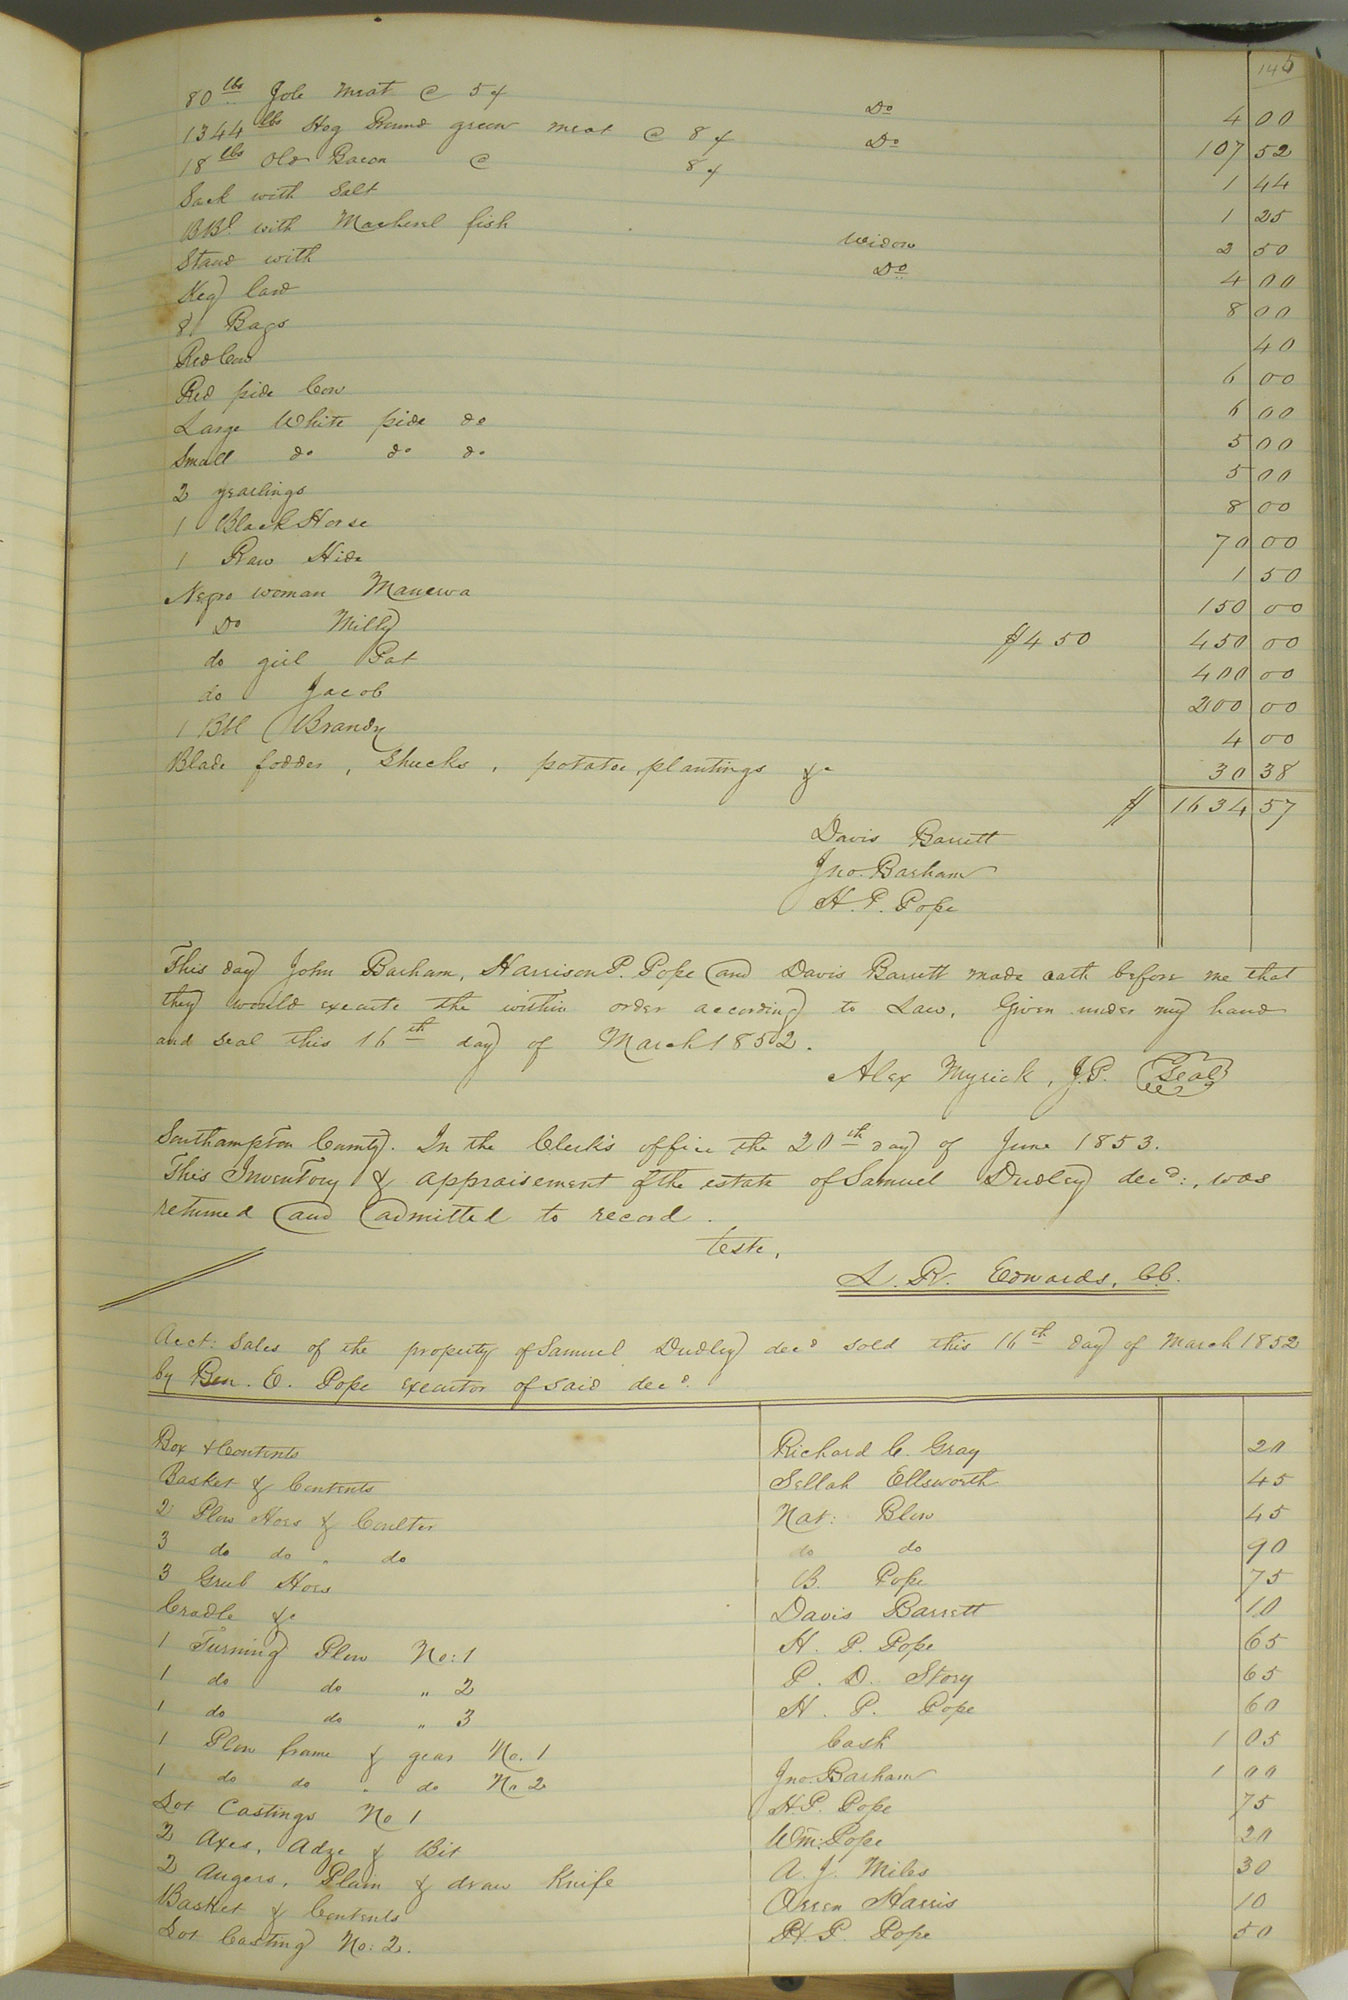 145
80 lbs Jole Meat @ 5¢ Do 4 00
1344 lbs Hog Round green meat @ 8¢ Do 107 52
18 lbs Old Bacon @ 8¢ 1 44
Sack with Salt 1 25
BBl with Mackerel fish Widow 2 50
Stand with Do 4 00
Keg lard 8 00
8 Bags 40
Red Cow 6 00
Red pide Cow 6 00
Large White pide do 5 00
Small do do do 5 00
2 yearlings 8 00
1 Black Horse 70 00
1 Raw Hide 1 50
Negro woman Manerva 150 00
Do Milly $450 450 00
do girl Pat 400 00
do Jacob 200 00
1 Bbl Brandy 4 00
Blade fodder, Shucks, potatoe plantings &c 30 38
$ 1634 57
Davis Barrett
Jno. Barham
H. P. Pope
This day John Barham, Harrison P. Pope and Davis Barrett made oath before me that
they would execute the within order according to Law. Given under my hand
and seal this 16th day of March 1852.
Alex Myrick, J.P. Seal
Southampton County. In the Clerk's office the 20th day of June 1853.
This Inventory & appraisement of the estate of Samuel Dudley decd:, was
returned and admitted to record.
Teste,
L. R. Edwards, C.C.
Acct: Sales of the property of Samuel Dudley decd sold this 16th day of March 1852
by Ben. E. Pope executor of said decd.
Box & Contents Richard C. Gray 20
Basket & Contents Sellah Ellsworth 45
2 Plow Hoes & Coulter Nat: Blow 45
3 do do " do do do 90
3 Grub Hoes B. Pope 75
Cradle &c Davis Barrett 10
1 Turning Plow No: 1 H. P. Pope 65
1 do do " 2 P. D. Story 65
1 do do " 3 H. P. Pope 60
1 Plow frame & gear No. 1 Cash 1 05
1 do do " do No 2 Jno. Barham 1 00
Lot Castings No 1 H. P. Pope 75
2 Axes, Adze & Bit Wm: Pope 20
2 Augers, Plain & draw Knife A. J. Miles 30
Basket & Contents Orren Harris 10
Lot Casting No: 2. H. P. Pope 50